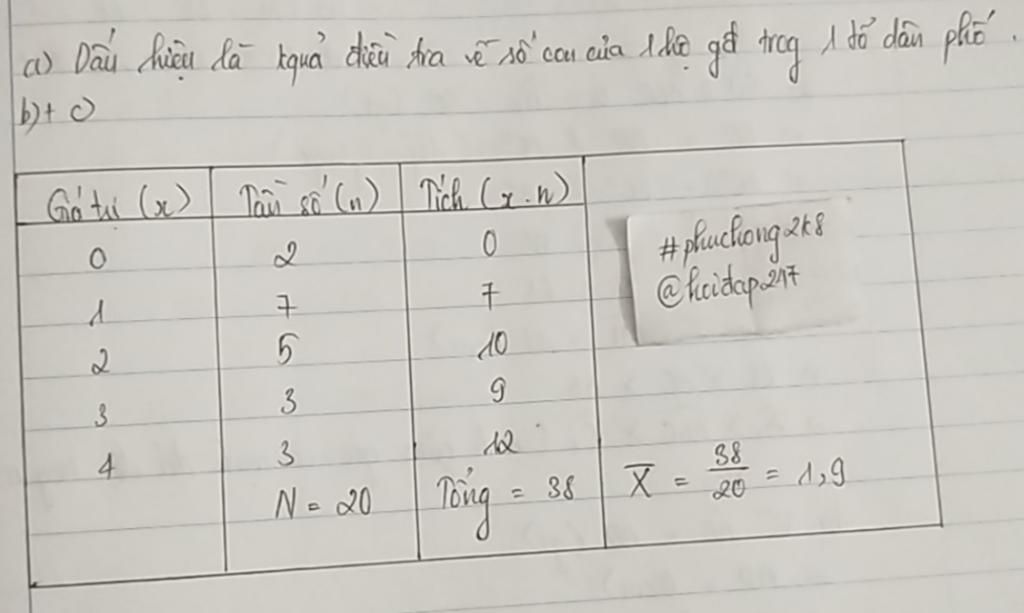 a) Dấu hiệu là kquả điều tra về số con của 1 hộ gđ trog 1 tổ dân phố.
b) + c)
Giá trị (x) Tần số (n) Tích (x.n)
0 2 0
1 7 7
2 5 10
3 3 9
4 3 12
N = 20 Tổng = 38 X̄ = 38/20 = 1,9
#phuchong2k8
@hoidap247